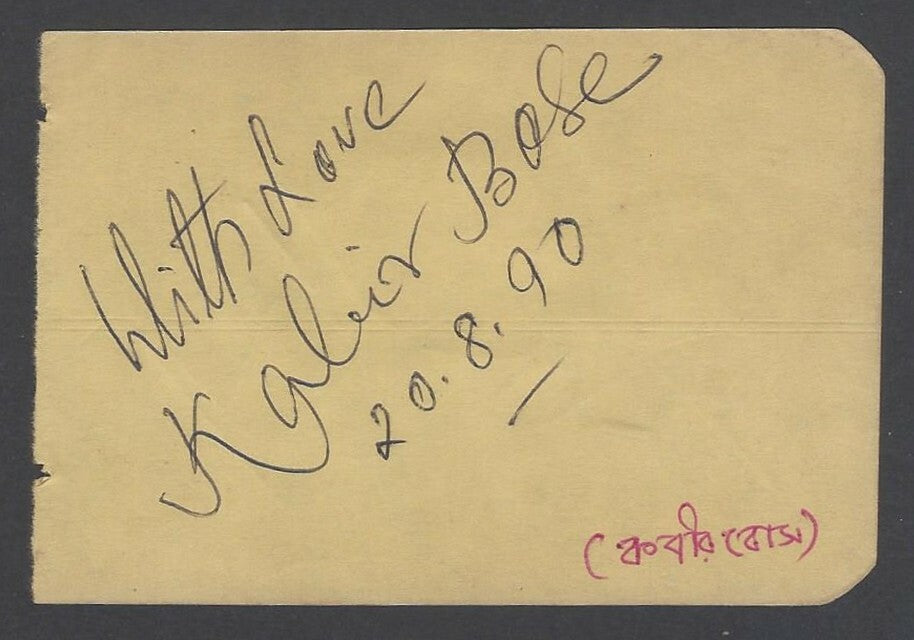 With Love
Kabir Bose
20.8.90
(কবীর বোস)